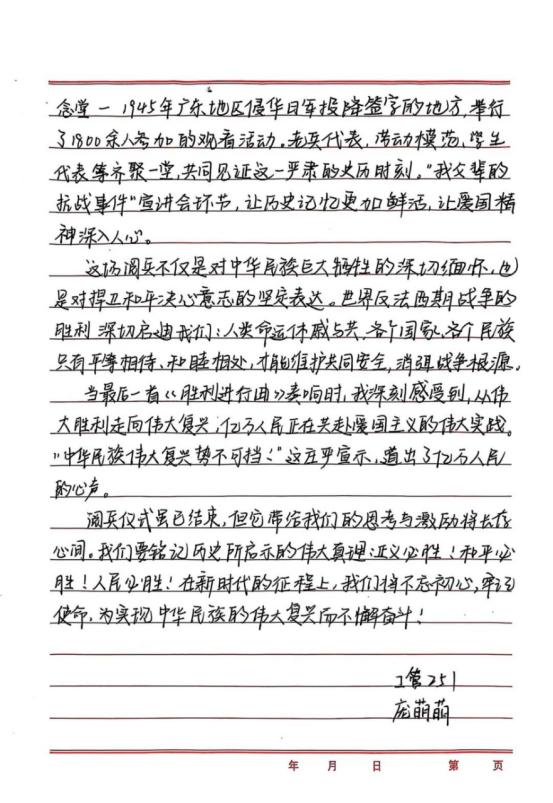 念堂一1945年广东地区侵华日军投降签字的地方,举行
了1800余人参加的观看活动。老兵代表,劳动模范、学生
代表等齐聚一堂,共同见证这一严肃的史历时刻。"我父辈的
抗战事件"宣讲会环节,让历史记忆更加鲜活,让爱国精
神深入人心。
这场阅兵不仅是对中华民族巨大牺牲的深切缅怀,也
是对捍卫和平决心意志的坚定表达。世界反法西斯战争的
胜利深切启迪我们:人类命运休戚与共,各个国家、各个民族
只有平等相待、和睦相处,才能维护共同安全,消弭战争根源。
当最后一首《胜利进行曲》奏响时,我深刻感受到,从伟
大胜利走向伟大复兴,亿万人民正在共赴爱国主义的伟大实践。
"中华民族伟大复兴势不可挡!"这庄严宣示,道出了亿万人民
的心声。
阅兵仪式虽已结束,但它带给我们的思考与激励将长存
心间。我们要铭记历史所启示的伟大真理:正义必胜!和平必
胜!人民必胜!在新时代的征程上,我们将不忘初心,牢记
使命,为实现中华民族的伟大复兴而不懈奋斗!
工管251
庞萌萌
年 月 日 第 页